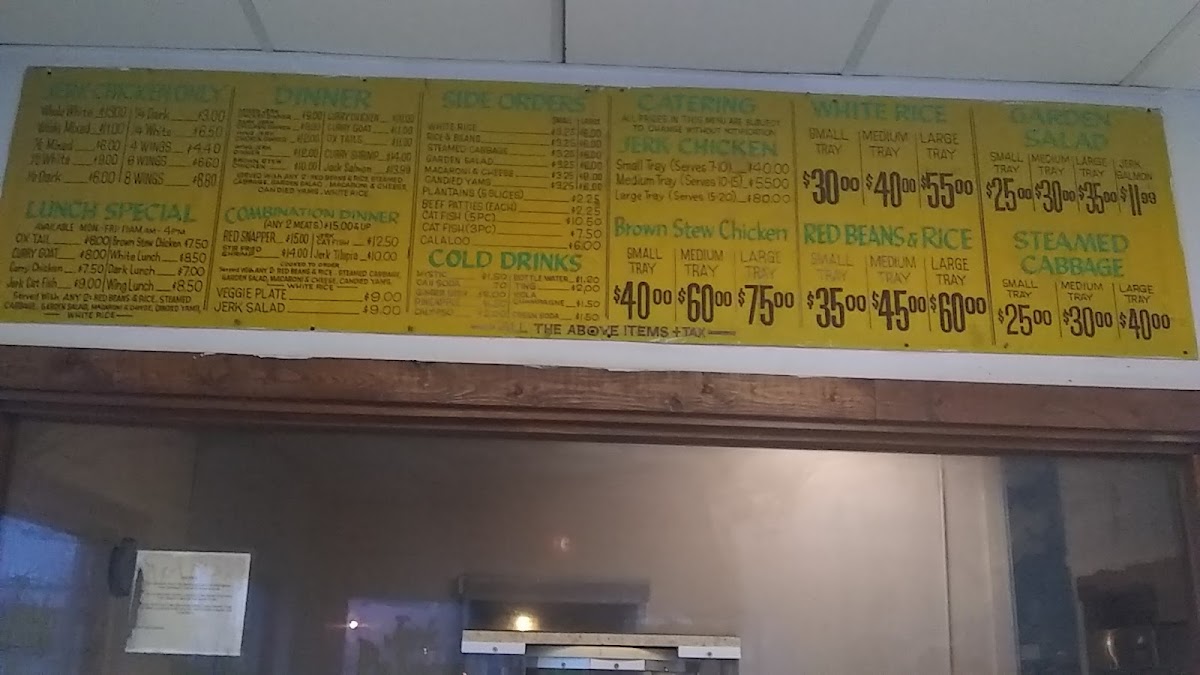 JERK CHICKEN ONLY
Whole White
1/4 Dark $3.00
Whole Mixed $11.00 1/4 White $6.50
1/2 Mixed $6.00 4 WINGS $4.40
1/2 White $9.00 6 WINGS $6.60
1/2 Dark $6.00 8 WINGS $8.80
LUNCH SPECIAL
AVAILABLE MON-FRI 11AM - 4PM
OX TAIL $8.00 Brown Stew Chicken $7.50
CURRY GOAT $8.00 White Lunch $8.50
Curry Chicken $7.50 Dark Lunch $7.00
Jerk Cat Fish $9.00 Wing Lunch $8.50
Served With ANY 2: RED BEANS & RICE, STEAMED
CABBAGE, GARDEN SALAD, MACARONI & CHEESE, CANDIED YAMS,
WHITE RICE
DINNER
CURRY CHICKEN
CURRY GOAT
OX TAILS
CURRY SHRIMP $14.00
Jerk Salmon $13.99
SERVED WITH ANY 2: RED BEANS & RICE, STEAMED
CABBAGE, GARDEN SALAD, MACARONI & CHEESE,
CANDIED YAMS, WHITE RICE
COMBINATION DINNER
(ANY 2 MEATS) $15.00 & UP
RED SNAPPER $15.00 JERK CAT FISH $12.50
STIR FRIED SHRIMP $14.00 Jerk Tilapia $10.00
COOKED TO ORDER
Served With ANY 2: RED BEANS & RICE, STEAMED CABBAGE,
GARDEN SALAD, MACARONI & CHEESE, CANDIED YAMS,
WHITE RICE
VEGGIE PLATE $9.00
JERK SALAD $9.00
SIDE ORDERS
SMALL LARGE
WHITE RICE
RICE & BEANS
STEAMED CABBAGE
GARDEN SALAD
MACARONI & CHEESE
CANDIED YAMS
PLANTAINS (5 SLICES) $2.25
BEEF PATTIES (EACH) $2.25
CAT FISH (5PC) $10.50
CAT FISH (3PC) $7.50
CALALOO $6.00
COLD DRINKS
MYSTIC $1.50 BOTTLE WATER $1.00
TING $2.00
KOLA
CHAMPAGNE $1.50
CREAM SODA $1.50
ALL THE ABOVE ITEMS + TAX
CATERING
ALL PRICES IN THIS MENU ARE SUBJECT
TO CHANGE WITHOUT NOTIFICATION
JERK CHICKEN
Small Tray (Serves 7-10) $40.00
Medium Tray (Serves 10-15) $55.00
Large Tray (Serves 15-20) $80.00
Brown Stew Chicken
SMALL TRAY MEDIUM TRAY LARGE TRAY
$40.00 $60.00 $75.00
WHITE RICE
SMALL TRAY MEDIUM TRAY LARGE TRAY
$30.00 $40.00 $55.00
RED BEANS & RICE
SMALL TRAY MEDIUM TRAY LARGE TRAY
$35.00 $45.00 $60.00
GARDEN
SALAD
SMALL TRAY MEDIUM TRAY LARGE TRAY JERK SALMON
$25.00 $30.00 $35.00 $11.99
STEAMED
CABBAGE
SMALL TRAY MEDIUM TRAY LARGE TRAY
$25.00 $30.00 $40.00